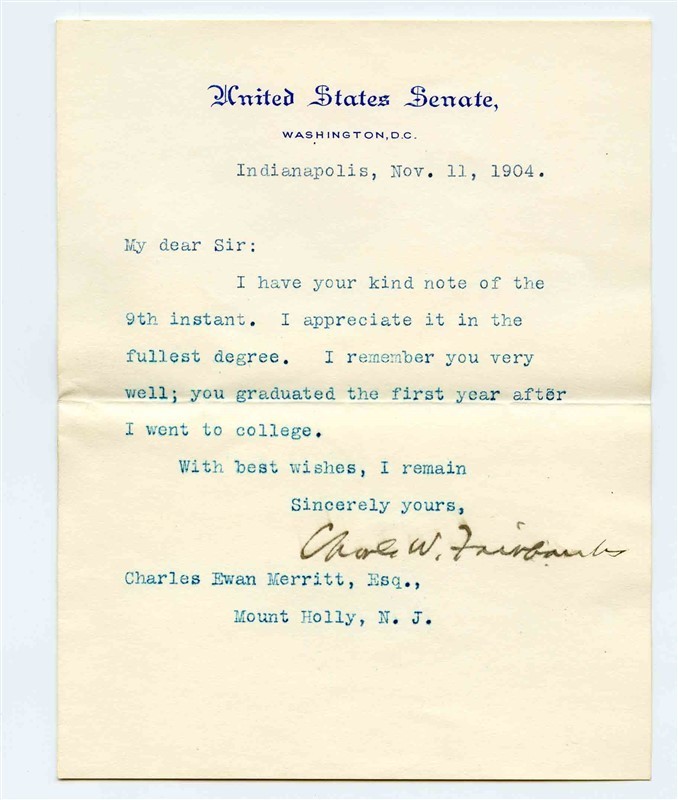 United States Senate,
WASHINGTON, D.C.
Indianapolis, Nov. 11, 1904.
My dear Sir:
I have your kind note of the
9th instant. I appreciate it in the
fullest degree. I remember you very
well; you graduated the first year after
I went to college.
With best wishes, I remain
Sincerely yours,
Charles W. Fairbanks
Charles Ewan Merritt, Esq.,
Mount Holly, N. J.